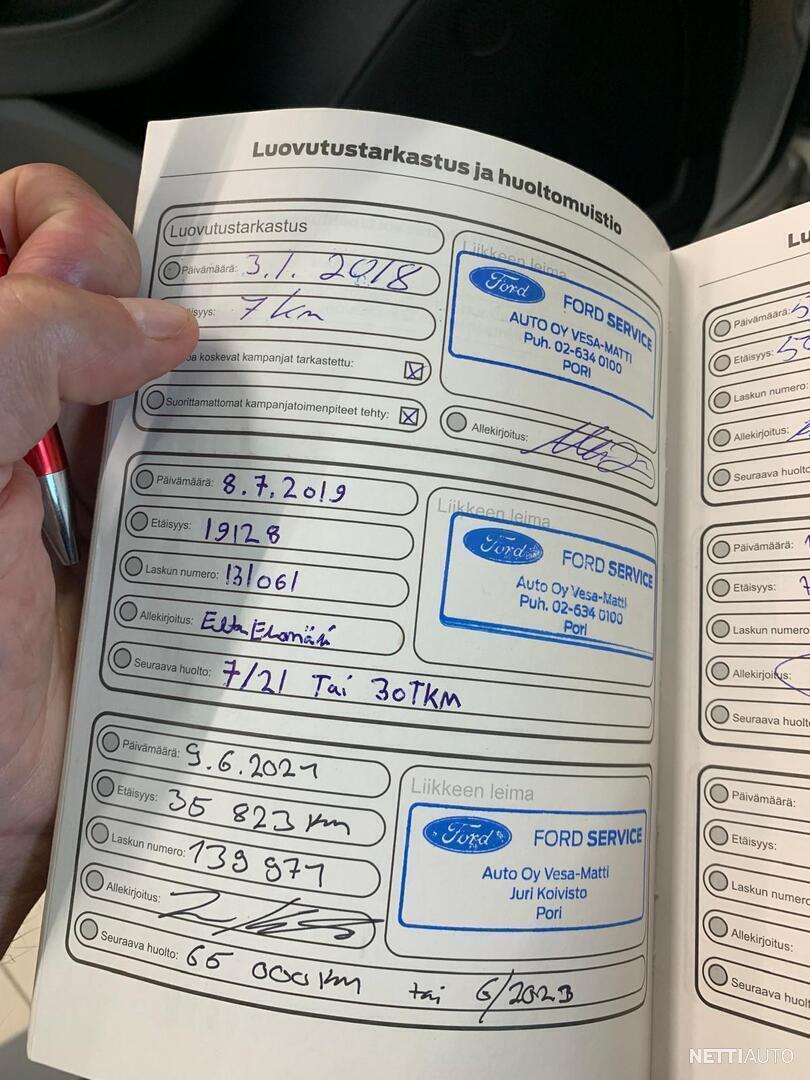 Luovutustarkastus ja huoltomuistio
Luovutustarkastus
Päivämäärä: 3.1.2018
7 km
koskevat kampanjat tarkastettu:
Suorittamattomat kampanjatoimenpiteet tehty:
Liikkeen leima
Ford
FORD SERVICE
AUTO OY VESA-MATTI
Puh. 02-634 0100
PORI
Allekirjoitus:
Päivämäärä: 8.7.2019
Etäisyys: 19128
Laskun numero: 131061
Allekirjoitus:
Seuraava huolto: 7/21 Tai 30TKM
Liikkeen leima
Ford
FORD SERVICE
Auto Oy Vesa-Matti
Puh. 02-634 0100
Pori
Päivämäärä: 9.6.2021
Etäisyys: 35 823 km
Laskun numero: 139 971
Allekirjoitus:
Seuraava huolto: 65 000 KM tai 6/2023
Liikkeen leima
Ford
FORD SERVICE
Auto Oy Vesa-Matti
Juri Koivisto
Pori
Päivämäärä:
Etäisyys:
Laskun numero:
Allekirjoitus:
Seuraava
Päivämäärä:
Etäisyys:
Laskun numero
Allekirjoitus:
Seuraava
Päivämäärä:
Etäisyys:
Laskun
Allekirjoitus:
Seuraava
NETTIAUTO